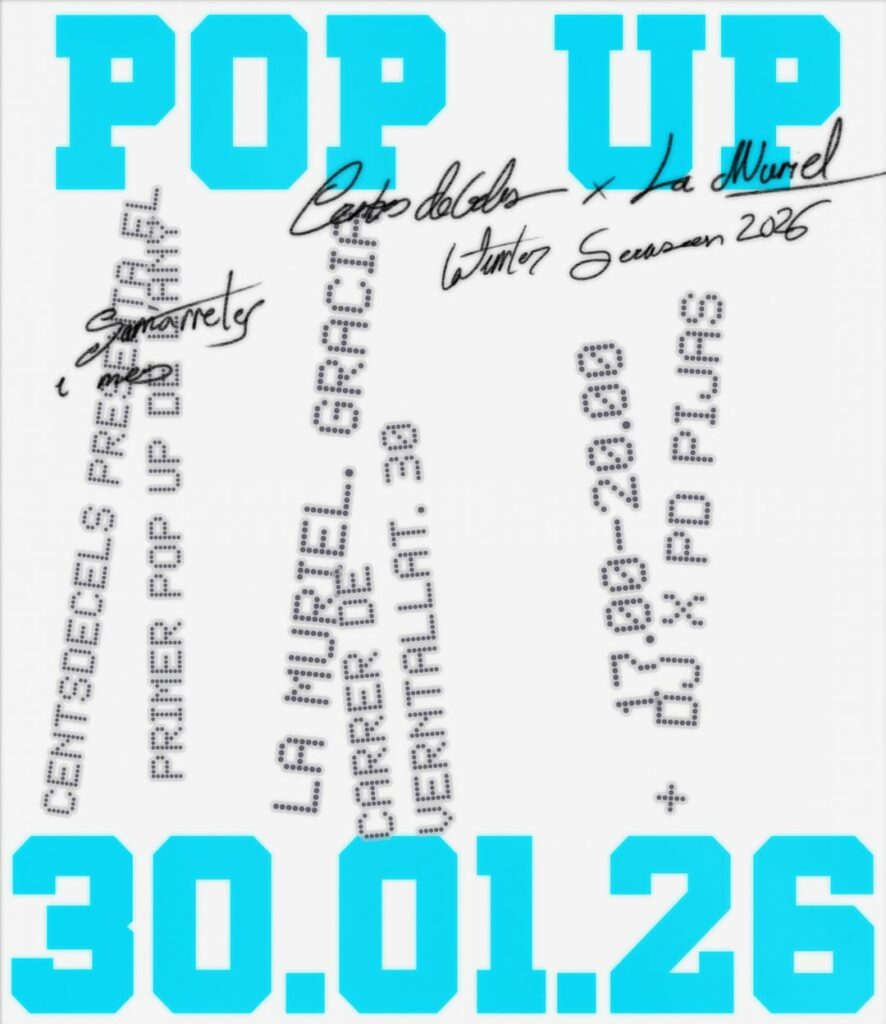 POP UP
Centsdecels x La Muriel
Winter Season 2026
Samarretes
i mes
CENTSDECELS PRESENTA EL
PRIMER POP UP DE L'ANY
LA MURIEL. GRACIA
CARRER DE
VERNTALLAT. 30
17.00-20.00
+ DJ X PD PIJAS
30.01.26